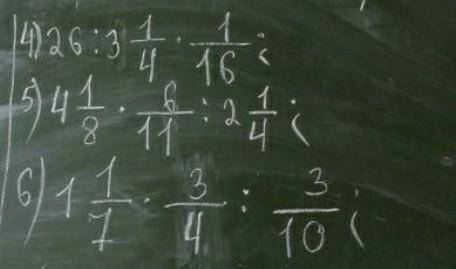 4) 26 : 3 1/4 · 1/16 ;
5) 4 1/8 · 6/11 : 2 1/4 ;
6) 1 1/7 · 3/4 : 3/10 ;